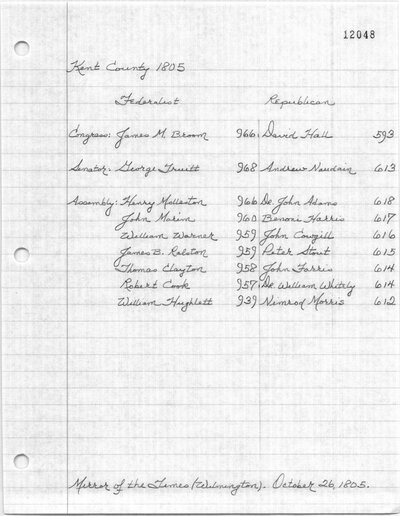 12048
Kent County 1805
Federalist Republican
Congress: James M. Broom 966 David Hall 593
Senator: George Truitt 968 Andrew Naudain 613
Assembly: Henry Molleston 966 Dr. John Adams 618
John Marim 960 Benoni Harris 617
William Warner 959 John Cowgill 616
James B. Ralston 959 Peter Stout 615
Thomas Clayton 958 John Farris 614
Robert Cook 957 Dr. William Whitely 614
William Hughlett 939 Nimrod Morris 612
Mirror of the Times (Wilmington). October 26, 1805.